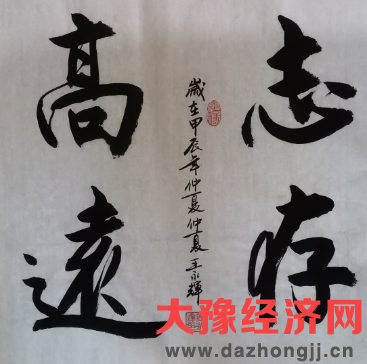 志存
高遠
歲在甲辰年仲夏仲夏王永輝
大豫经济网
www.dazhongjj.cn